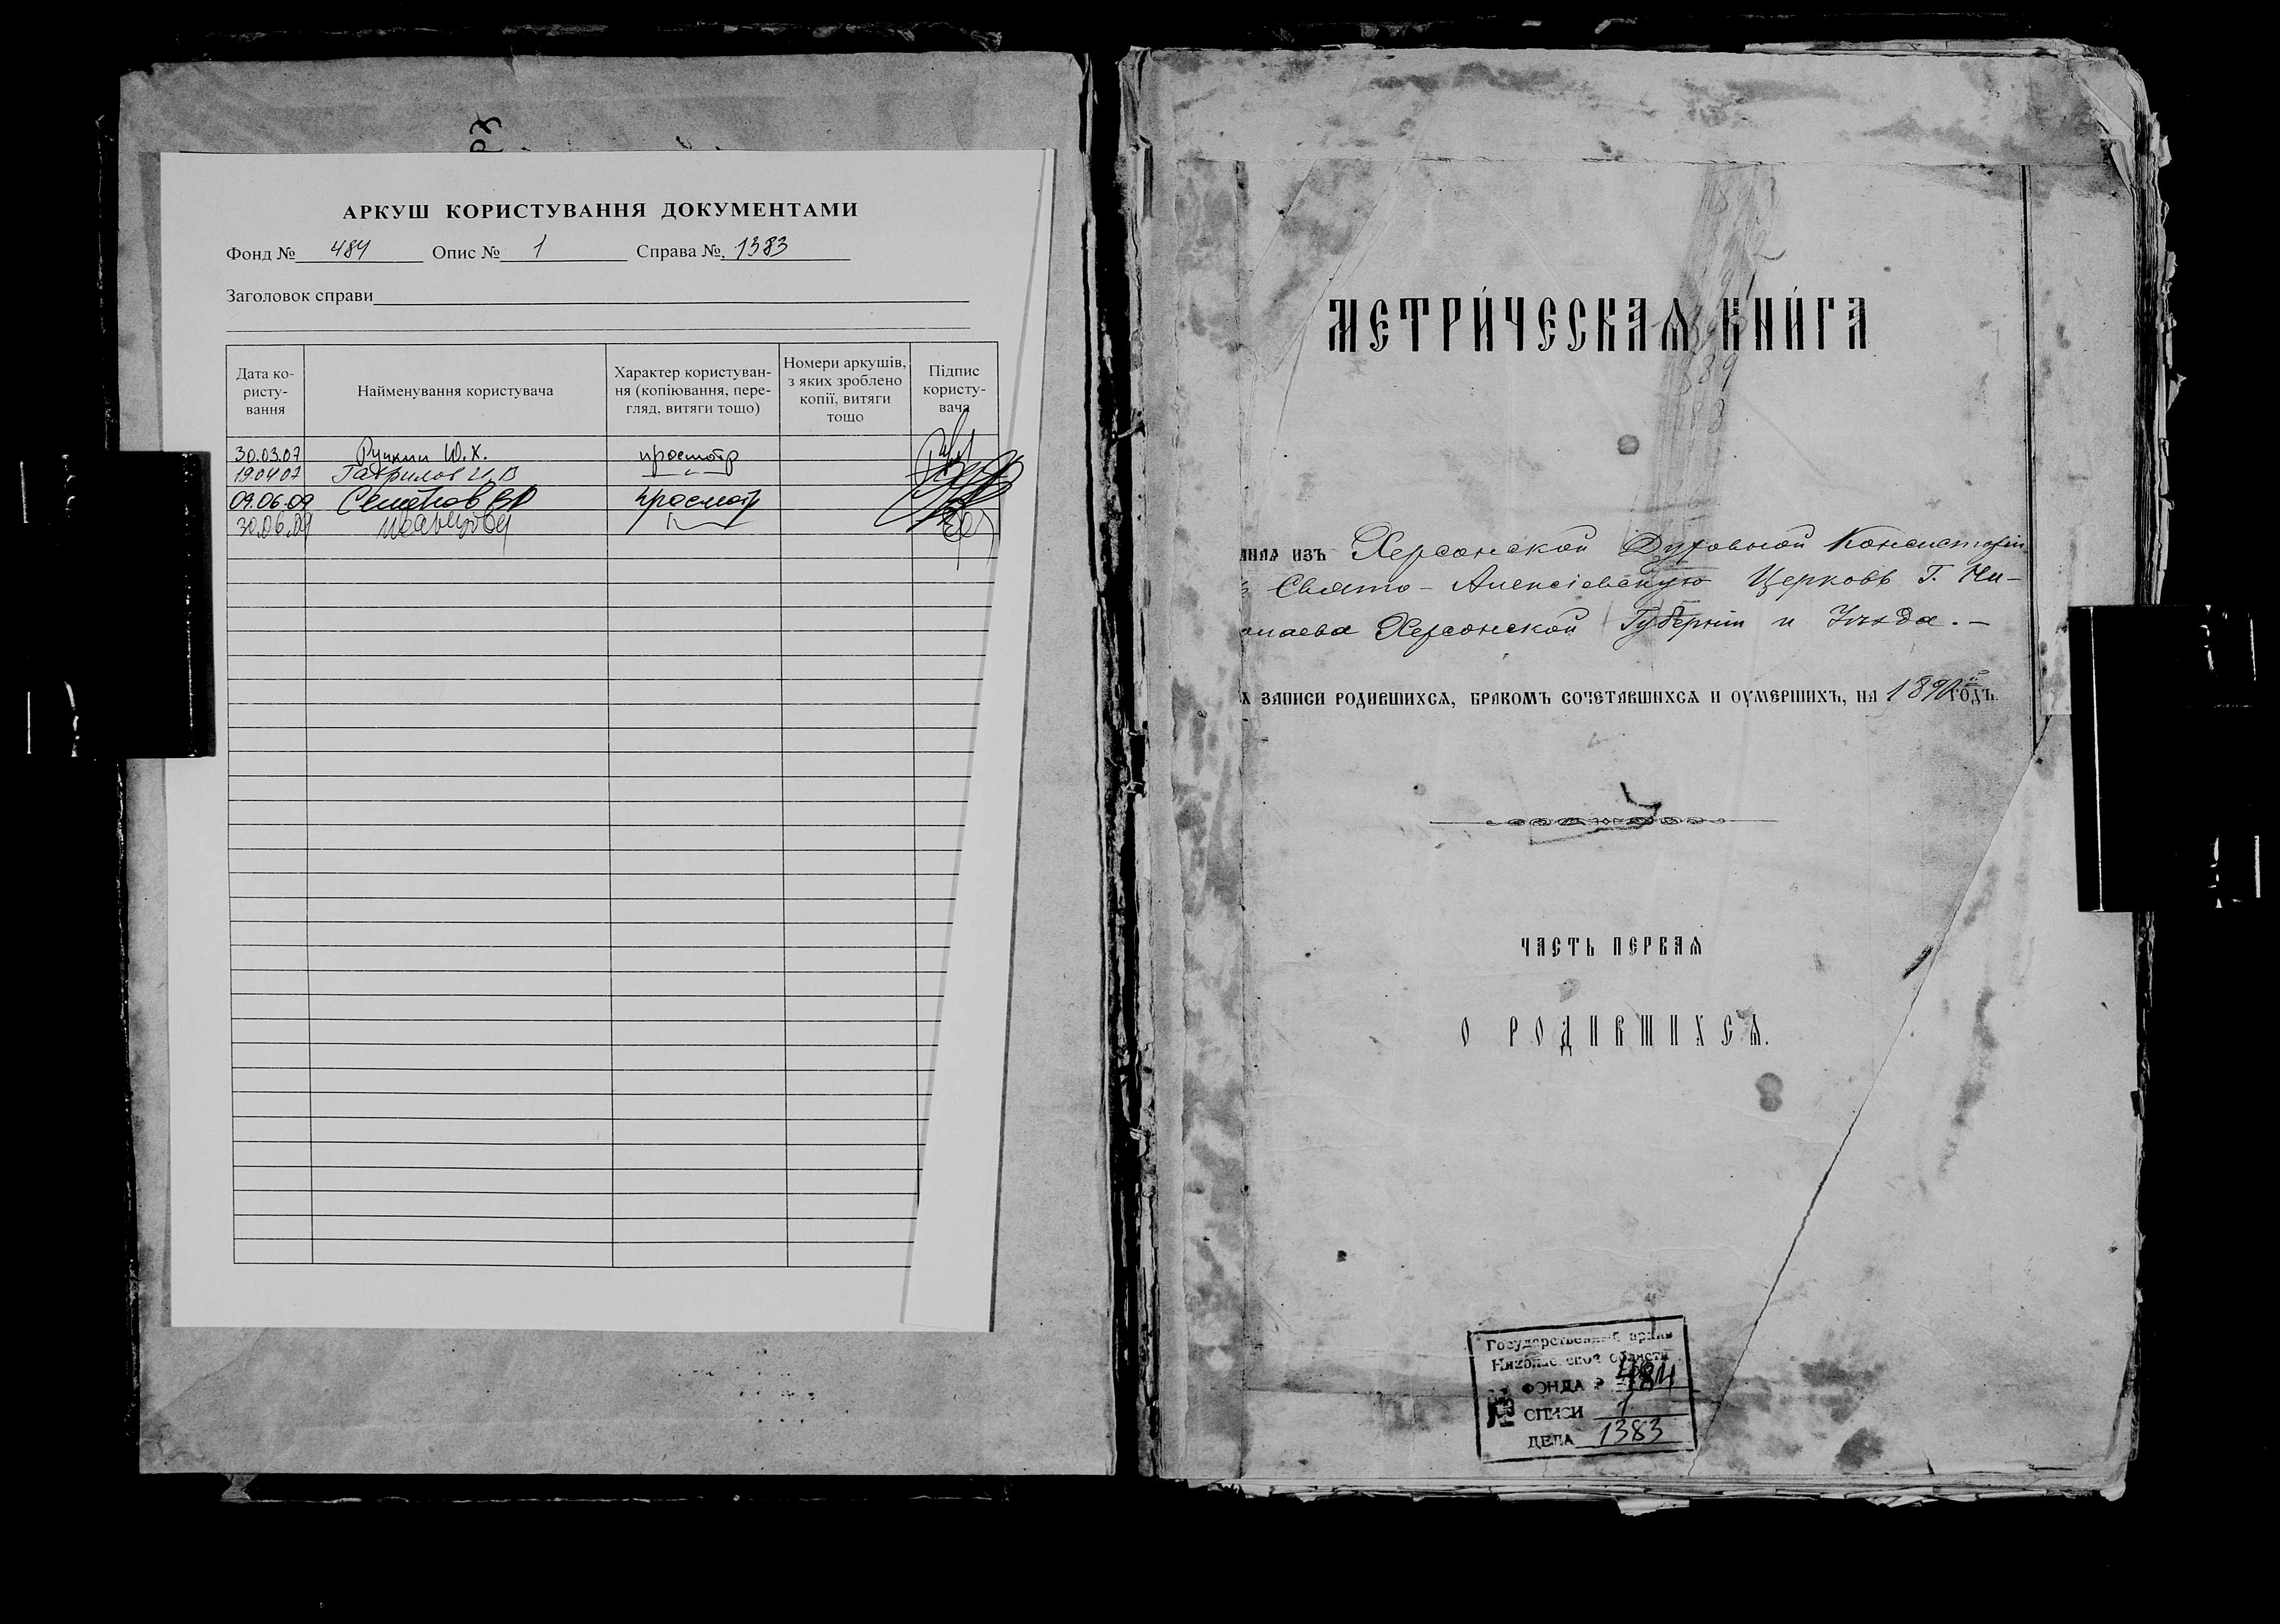 АРКУШ КОРИСТУВАННЯ ДОКУМЕНТАМИ
Фонд № 484 Опис № 1 Справа № 1383
Заголовок справи
Дата ко-
ристу-
вання
Найменування користувача
Характер користуван-
ня (копіювання, пере-
гляд, витяги тощо)
Номери аркушів,
з яких зроблено
копії, витяги
тощо
Підпис
користу-
вача
30.03.07 Ю.Х. просмотр
19.04.07 Гаврилов —"—
09.06.09 Семенов просмотр
30.06.09
МЕТРИ́ЧЕСКАѦ КНИ́ГА
изъ Херсонской Духовной Консисторіи
Свято-Алексіевскую Церковь Г. Ни-
олаева Херсонской Губерніи и Уѣзда.—
ЗАПИСИ РОДИВШИХСѦ, БРАКОМЪ СОЧЕТАВШИХСѦ И ОУМЕРШИХЪ, НА ГОДЪ.
ЧАСТЬ ПЕРВАѦ
О РОДИВШИХСѦ.
Государственный архив
Николаевской области
ФОНДА Р 484
№ ОПИСИ 1
ДЕЛА 1383